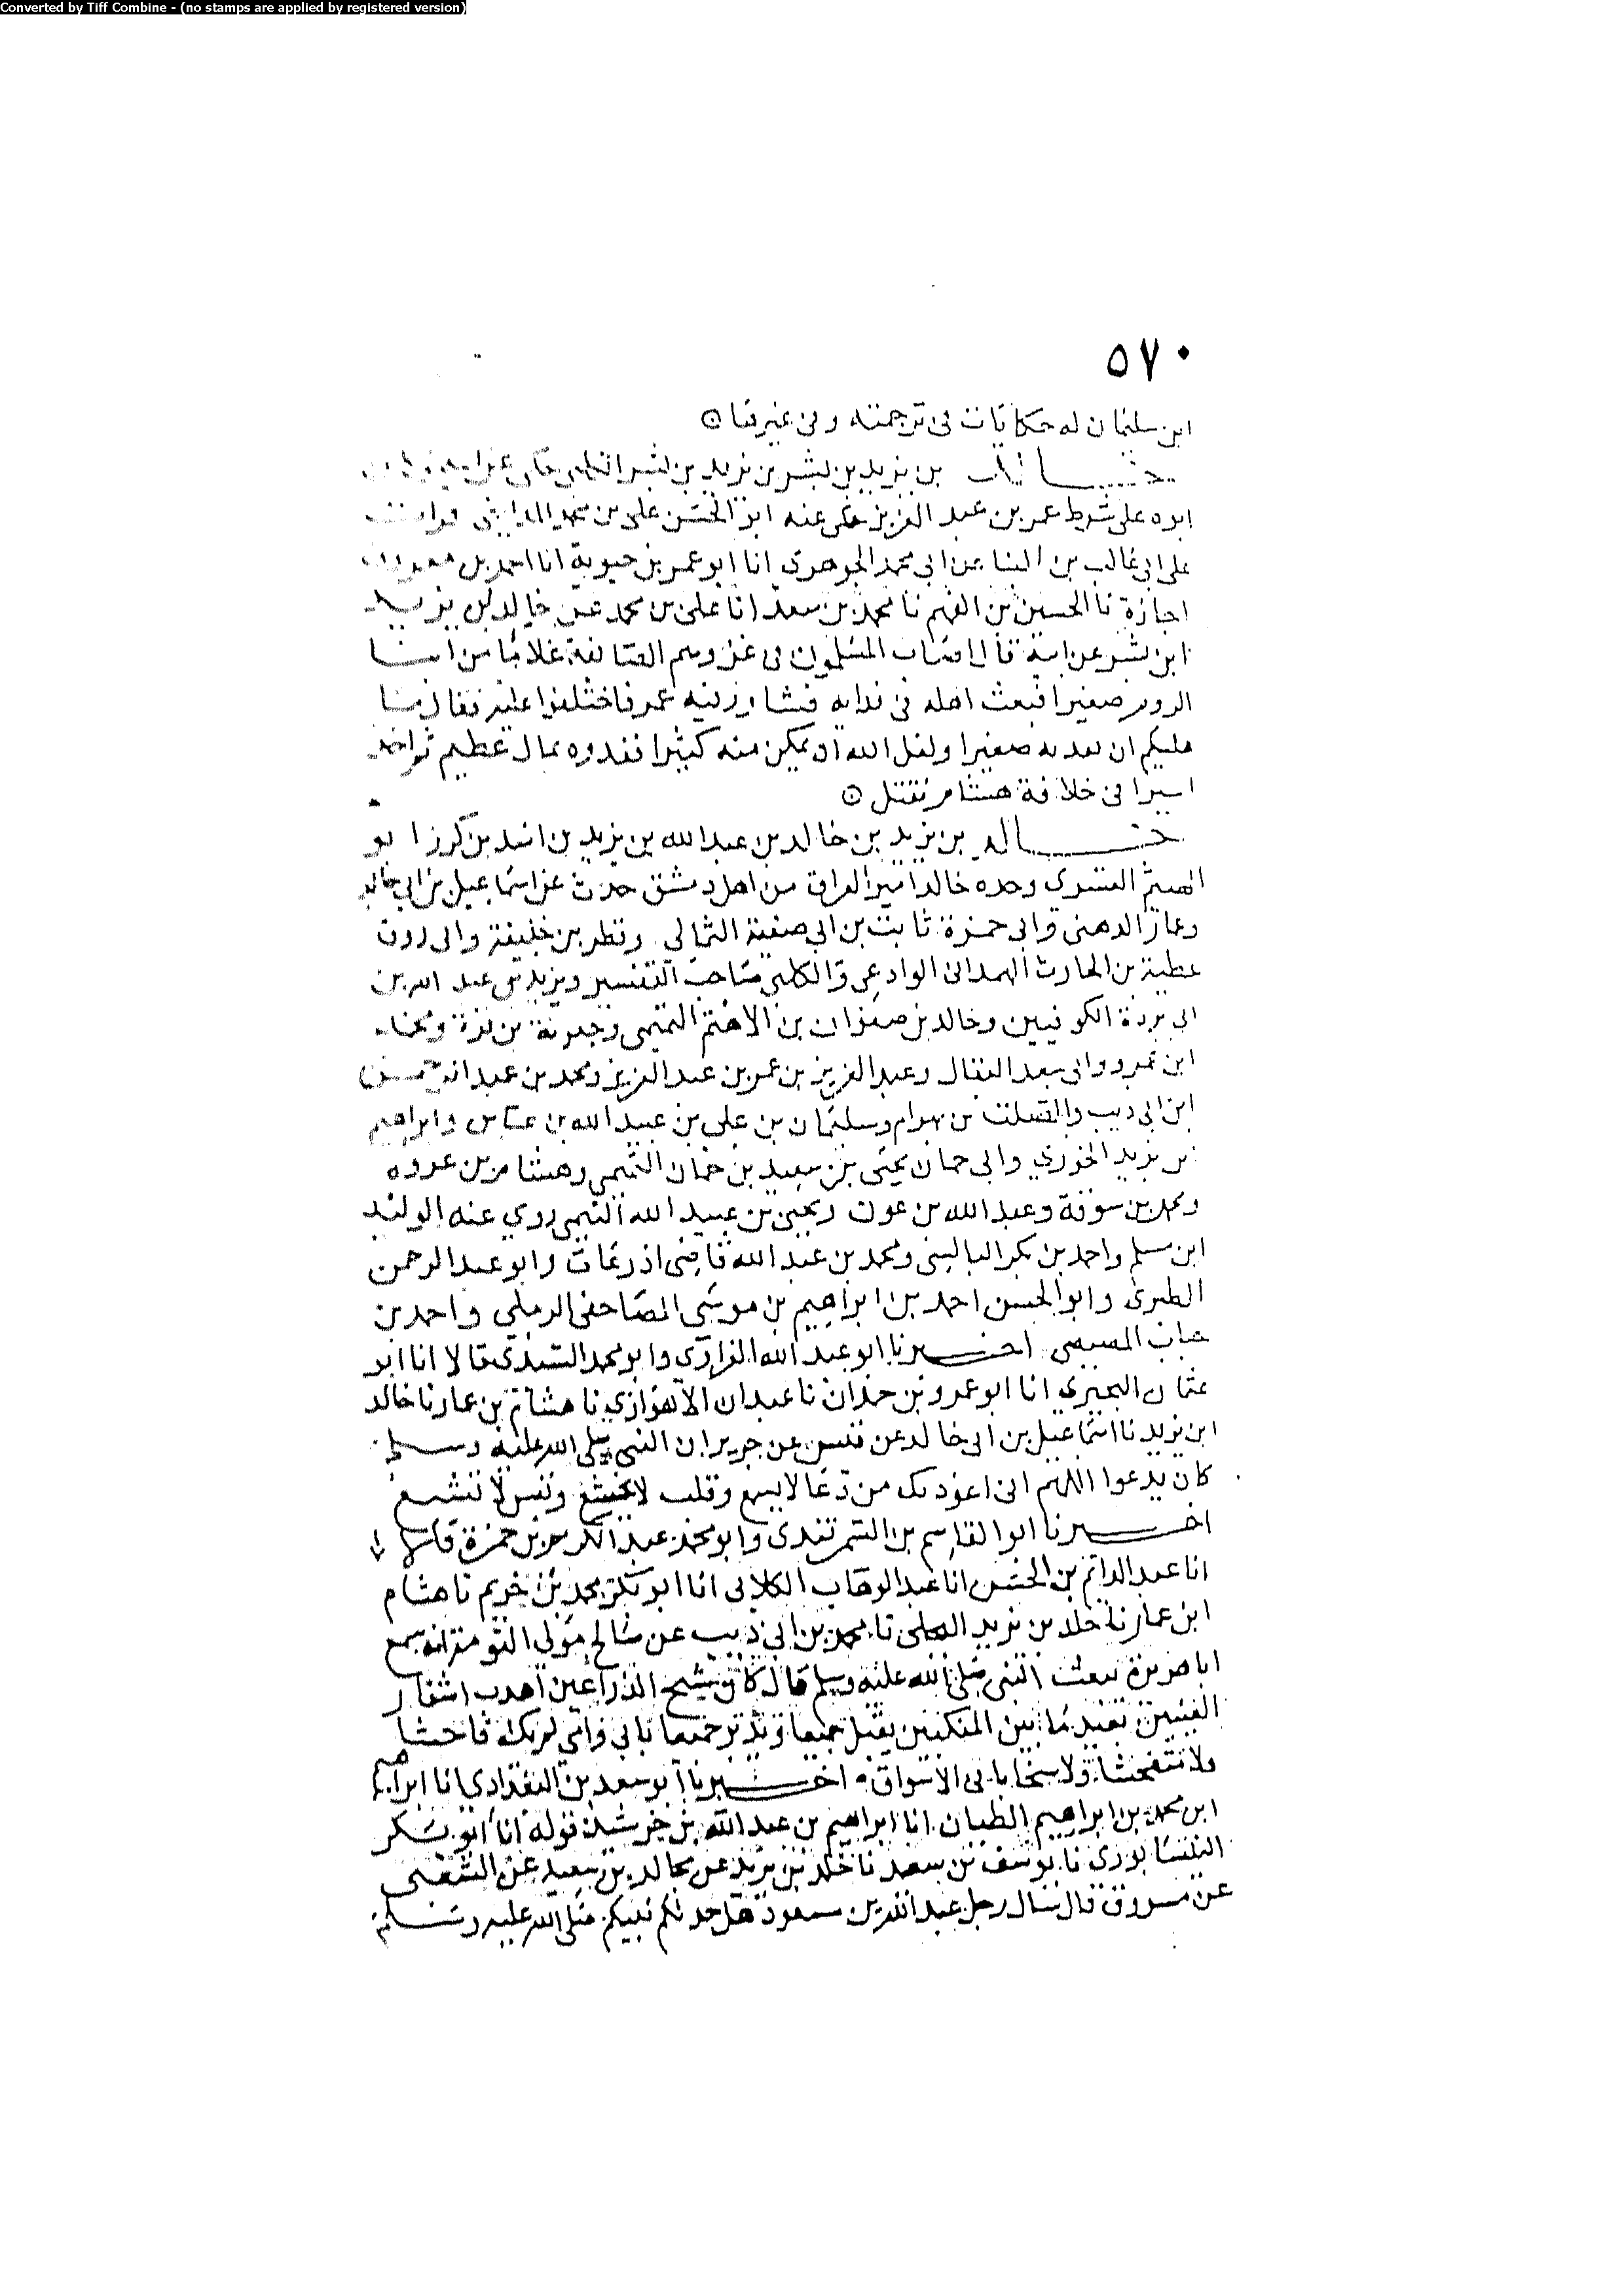 Converted by Tiff Combine - (no stamps are applied by registered version)
٥٧٠
ابن سليمان له حكايات فى ترجمته وفى غيرها
خالد بن يزيد بن بشر بن يزيد بن بشر الكلبى حكى عن ابيه وكان
ابوه على شرط عمر بن عبد العزيز حكى عنه ابو الحسن على بن محمد المداينى قرات
على ابى غالب بن البنا عن ابى محمد الجوهرى انا ابو عمر بن حيوية انا احمد بن معروف
اجازة نا الحسين بن الفهم نا محمد بن سعد انا على بن محمد عن خالد بن يزيد
ابن بشر عن ابيه قال اصاب المسلمون فى غزوهم الصائفة غلاما من ابنا
الروم صغيرا فبعث اهله فى فدايه فشاور فيه عمر فاختلفوا عليه فقال ما
عليكم ان نفديه صغيرا ولعل الله ان يمكن منه كبيرا ففدوه بمال عظيم ثم اخذ
اسيرا فى خلافة هشام فقتل
خالد بن يزيد بن خالد بن عبد الله بن يزيد بن اسد بن كرز ابو
الهيثم القسرى وجده خالد امير العراق من اهل دمشق حدث عن اسماعيل بن ابى خالد
وعمار الدهنى وابى حمزة ثابت بن ابى صفية الثمالى وفطر بن خليفة وابى روق
عطية بن الحارث الهمدانى الوادعى والكلبى صاحب التفسير ويزيد بن عبد الله بن
ابى بردة الكوفيين وخالد بن صفوان بن الاهتم التميمى و بن
ابن عمرو وابى سعد البقال وعبد العزيز بن عمر بن عبد العزيز ومحمد بن عبد
ابن ابى ذيب والصلت بن بهرام وسليمان بن على بن عبيد الله بن عباس وابراهيم
بن يزيد الخوزى وابى حيان يحيى بن سعيد بن حيان التيمى وهشام بن عروه
ومحمد بن سوقة وعبد الله بن عون ويحيى بن عبيد الله التيمى روي عنه الوليد
ابن مسلم واحمد بن بكر البالسى ومحمد بن عبد الله قاضى اذرعات وابو عبد الرحمن
الطبرى وابو الحسن احمد بن ابراهيم بن موسى المصاحفى الرملى واحمد بن
جناب المصيصى اخبرنا ابو عبد الله الفراوى وابو محمد السيدى قالا انا ابو
عثمان البحيري انا ابو عمرو بن حمدان نا عبدان الاهوازي نا هشام بن عمار نا خالد
ابن يزيد نا اسماعيل بن ابى خالد عن قيس عن جرير ان النبى صلى الله عليه وسلم
كان يدعوا اللهم انى اعوذ بك من دعا لا يسمع وقلب لا يخشع ونفس لا تشبع
اخبرنا ابو القاسم بن السمرقندى وابو محمد عبد الكريم بن حمزة قالا
انا عبد الدايم بن الحسن انا عبد الوهاب الكلابى انا ابو بكر محمد بن خريم نا هشام
ابن عمار نا خلد بن يزيد البجلى نا محمد بن ابى ذيب عن صالح مولى التومة انه سمع
ابا هريرة ينعت النبى صلى الله عليه وسلم قال كان شبح الذراعين اهدب اشفار
العينين بعيد ما بين المنكبين يقبل جميعا ويدبر جميعا بابى وامى لم يك فاحشا
ولا متفحشا ولا سخابا فى الاسواق اخبرنا ابو سعد بن البغدادي انا ابراهيم
ابن محمد بن ابراهيم الطيان انا ابراهيم بن عبد الله بن خرشيد قوله انا ابو بكر
النيسابورى نا يوسف بن سعيد نا خلد بن يزيد عن مجالد بن سعيد عن الشعبى
عن مسروق قال سال رجل عبد الله بن مسعود هل حدثكم نبيكم صلى الله عليه وسلم